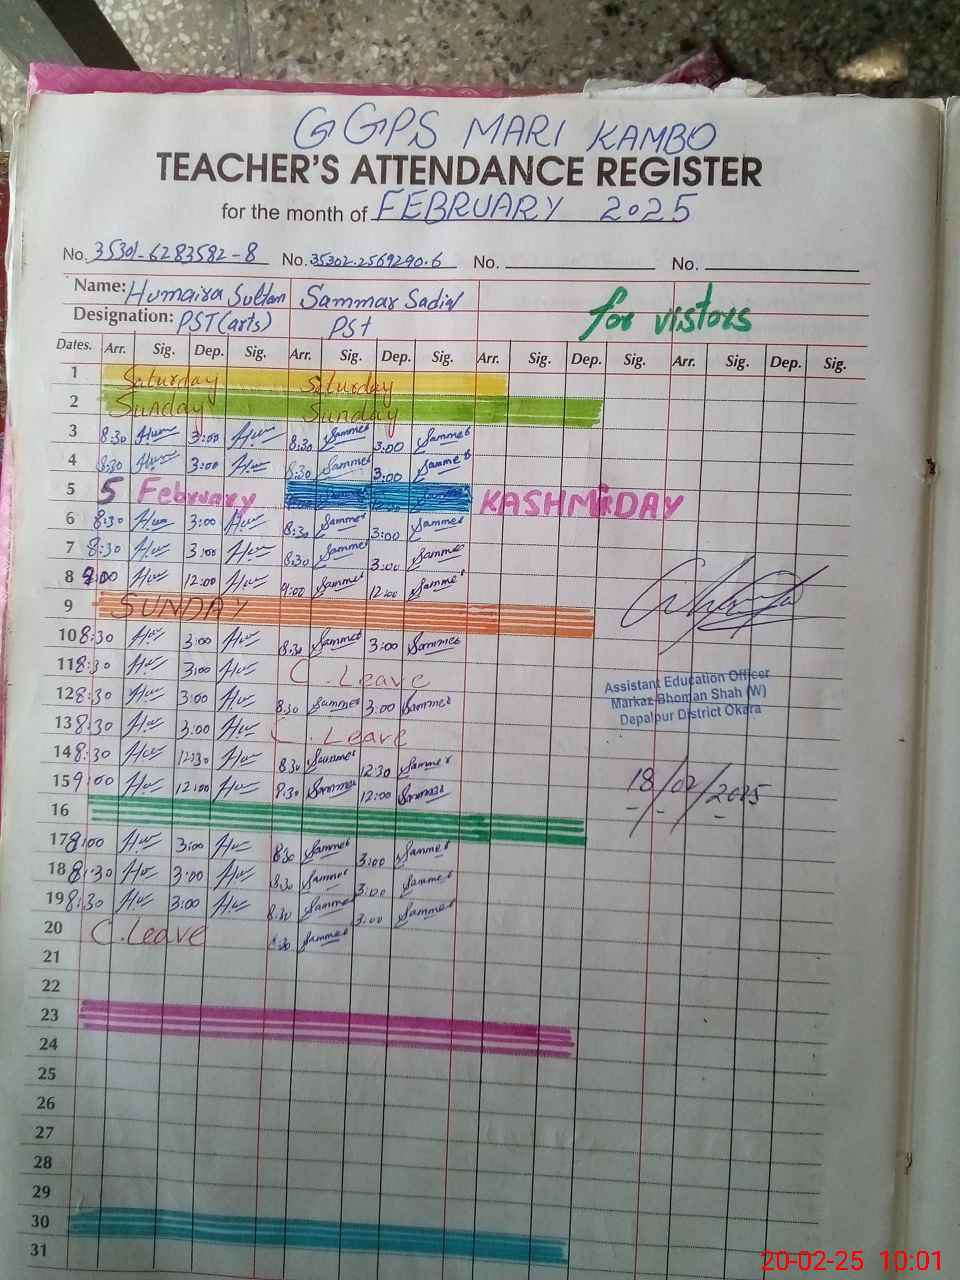 GGPS MARI KAMBO
TEACHER'S ATTENDANCE REGISTER
for the month of FEBRUARY 2025
No. 35301-6283582-8 No. 35302-2569290-6 No. No.
Name: Humaira Sultan Sammar Sadiq
Designation: PST(arts) PSt for vistors
Dates. Arr. Sig. Dep. Sig. Arr. Sig. Dep. Sig. Arr. Sig. Dep. Sig. Arr. Sig. Dep. Sig.
1 Saturday Saturday
2 Sunday Sunday
3 8:30 Hum 3:00 Hum 8:30 Sammer 3:00 Sammer
4 8:30 Hum 3:00 Hum 8:30 Sammer 3:00 Sammer
5 5 February KASHMIRDAY
6 8:30 Hum 3:00 Hum 8:30 Sammer 3:00 Sammer
7 8:30 Hum 3:00 Hum 8:30 Sammer 3:00 Sammer
8 9:00 Hum 12:00 Hum 9:00 Sammer 12:00 Sammer
9 SUNDAY
10 8:30 Hum 3:00 Hum 8:30 Sammer 3:00 Sammer
11 8:30 Hum 3:00 Hum C.Leave
12 8:30 Hum 3:00 Hum 8:30 Sammer 3:00 Sammer
Assistant Education Officer
Markaz Bhoman Shah (W)
Depalpur District Okara
13 8:30 Hum 3:00 Hum C.Leave
14 8:30 Hum 12:30 Hum 8:30 Sammer 12:30 Sammer
15 9:00 Hum 12:00 Hum Sammer 12:00 Sammer
18/02/2025
16
17 8:00 Hum 3:00 Hum 8:30 Sammer 3:00 Sammer
18 8:30 Hum 3:00 Hum 8:30 Sammer 3:00 Sammer
19 8:30 Hum 3:00 Hum 8:30 Sammer 3:00 Sammer
20 C.Leave 8:30 Sammer
21
22
23
24
25
26
27
28
29
30
31
20-02-25 10:01